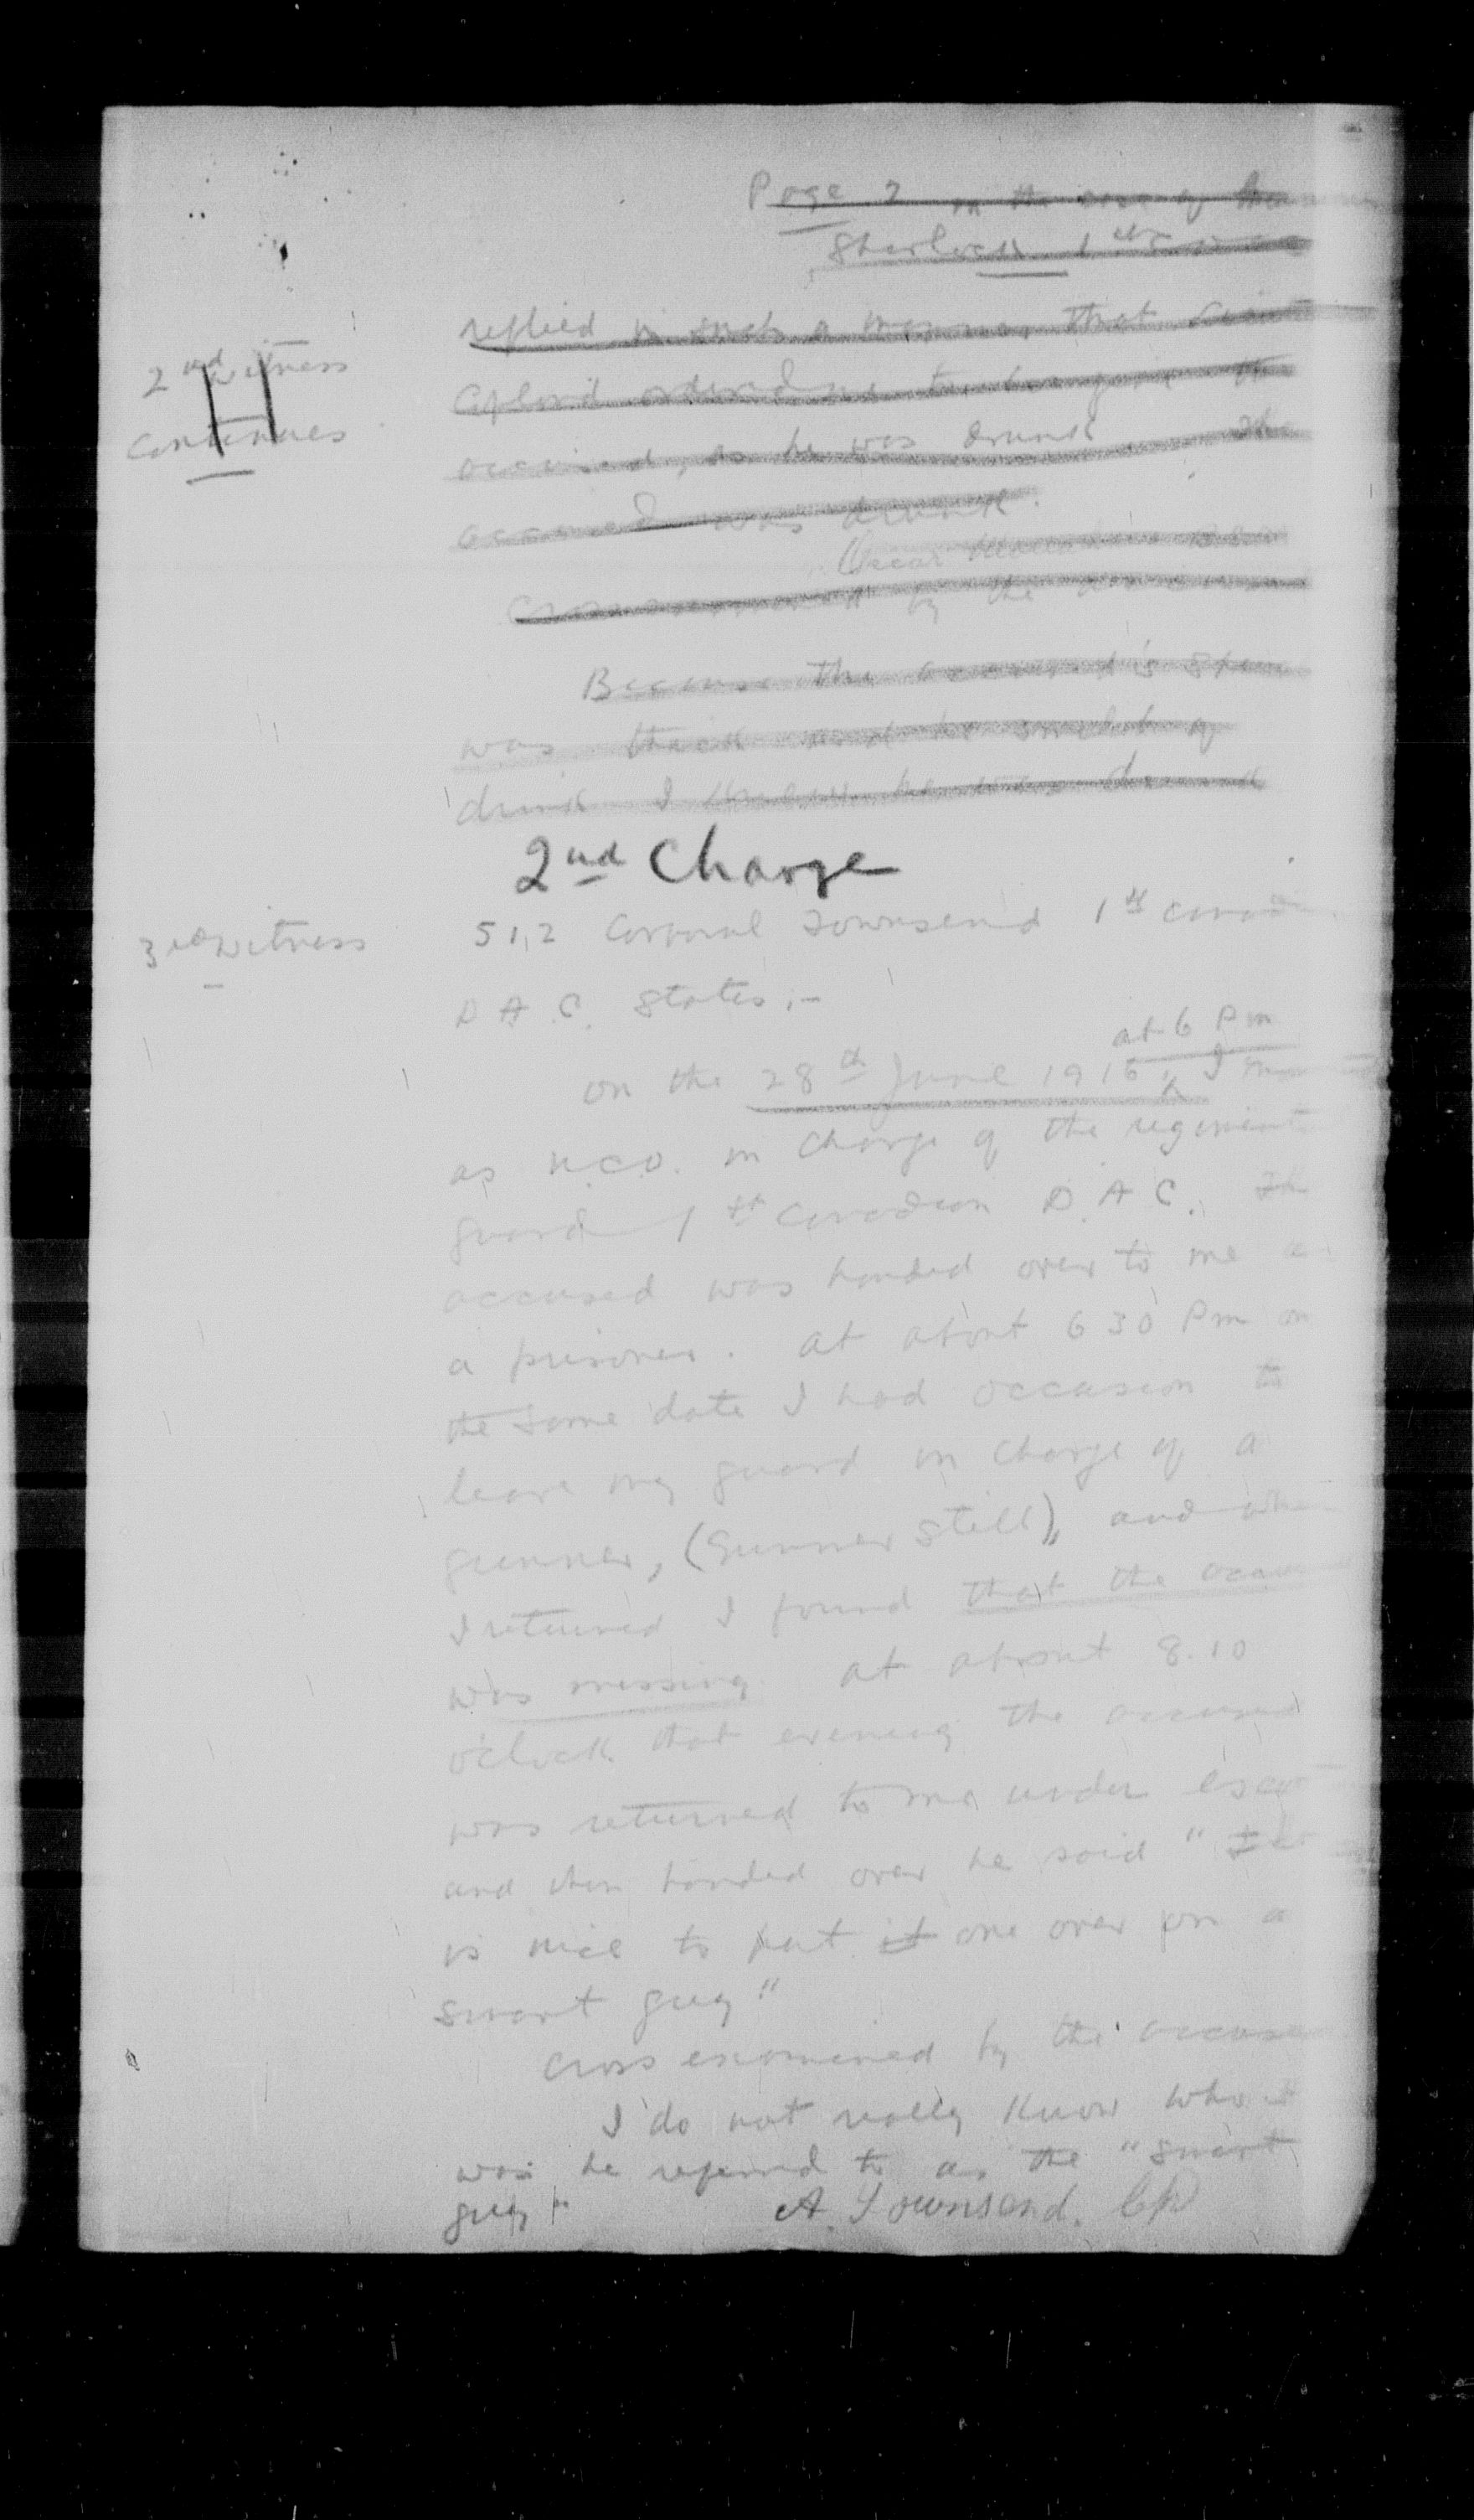 Page 2 in the case of
Sherlock 1st
2nd Witness
continues
replied in such a manner that
Capland ordered me to the
accused, as he was drunk. The
accused was drunk.
Oscar
Cross examined by the accused
Because the accused's
was thick and he smelt of
drink I knew he was drunk
2nd Charge
3rd Witness
512 Corporal Townsend 1st
D A C. States :-
at 6 Pm
on the 28th June 1916 I
as N.C.O. in charge of the
guard 1st Canadian D. A C. The
accused was handed over to me
a prisoner. at about 6 30 Pm on
the same date I had occasion to
leave my guard in charge of a
gunner, (Gunner Still), and
I returned I found that the
was missing at about 8.10
o'clock that evening the accused
was returned to me under
and when handed over he said "
is nice to put it one over on a
smart guy"
Cross examined by the
I do not really know who it
was he refered to as the "smart
guy" A. Townsend. Cpl